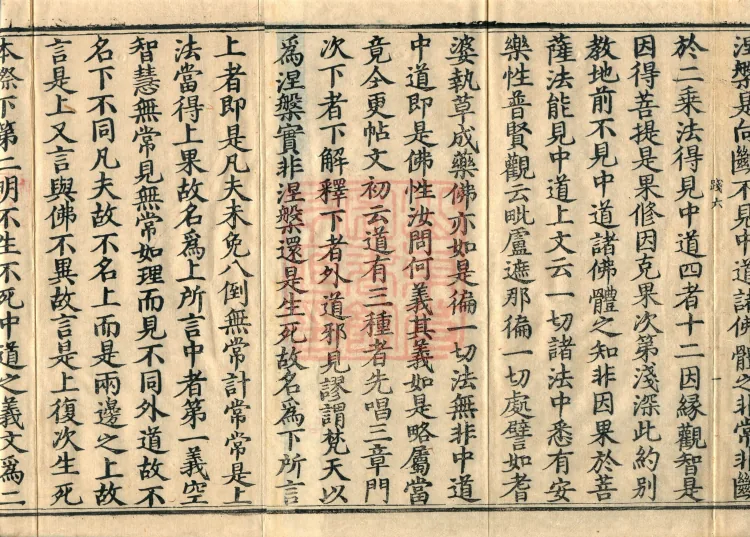 涅槃是而斷不見中道諸佛體之非常非斷
於二乘法得見中道四者十二因緣觀智是
因得菩提是果修因克果次第淺深此約別
教地前不見中道諸佛體之知非因果於菩
薩法能見中道上文云一切諸法中悉有安
樂性普賢觀云毗盧遮那徧一切處譬如耆
婆執草成藥佛亦如是徧一切法無非中道
中道即是佛性汝問何義其義如是略屬當
竟今更帖文初云道有三種者先唱三章門
次下者下解釋下者外道邪見謬謂梵天以
爲涅槃實非涅槃還是生死故名爲下所言
上者即是凡夫未免八倒無常計常常是上
法當得上果故名爲上所言中者第一義空
智慧無常見無常如理而見不同外道故不
名下不同凡夫故不名上而是兩邊之上故
言是上又言與佛不異故言是上復次生死
本際下第二明不生不死中道之義文爲二
踐六
一